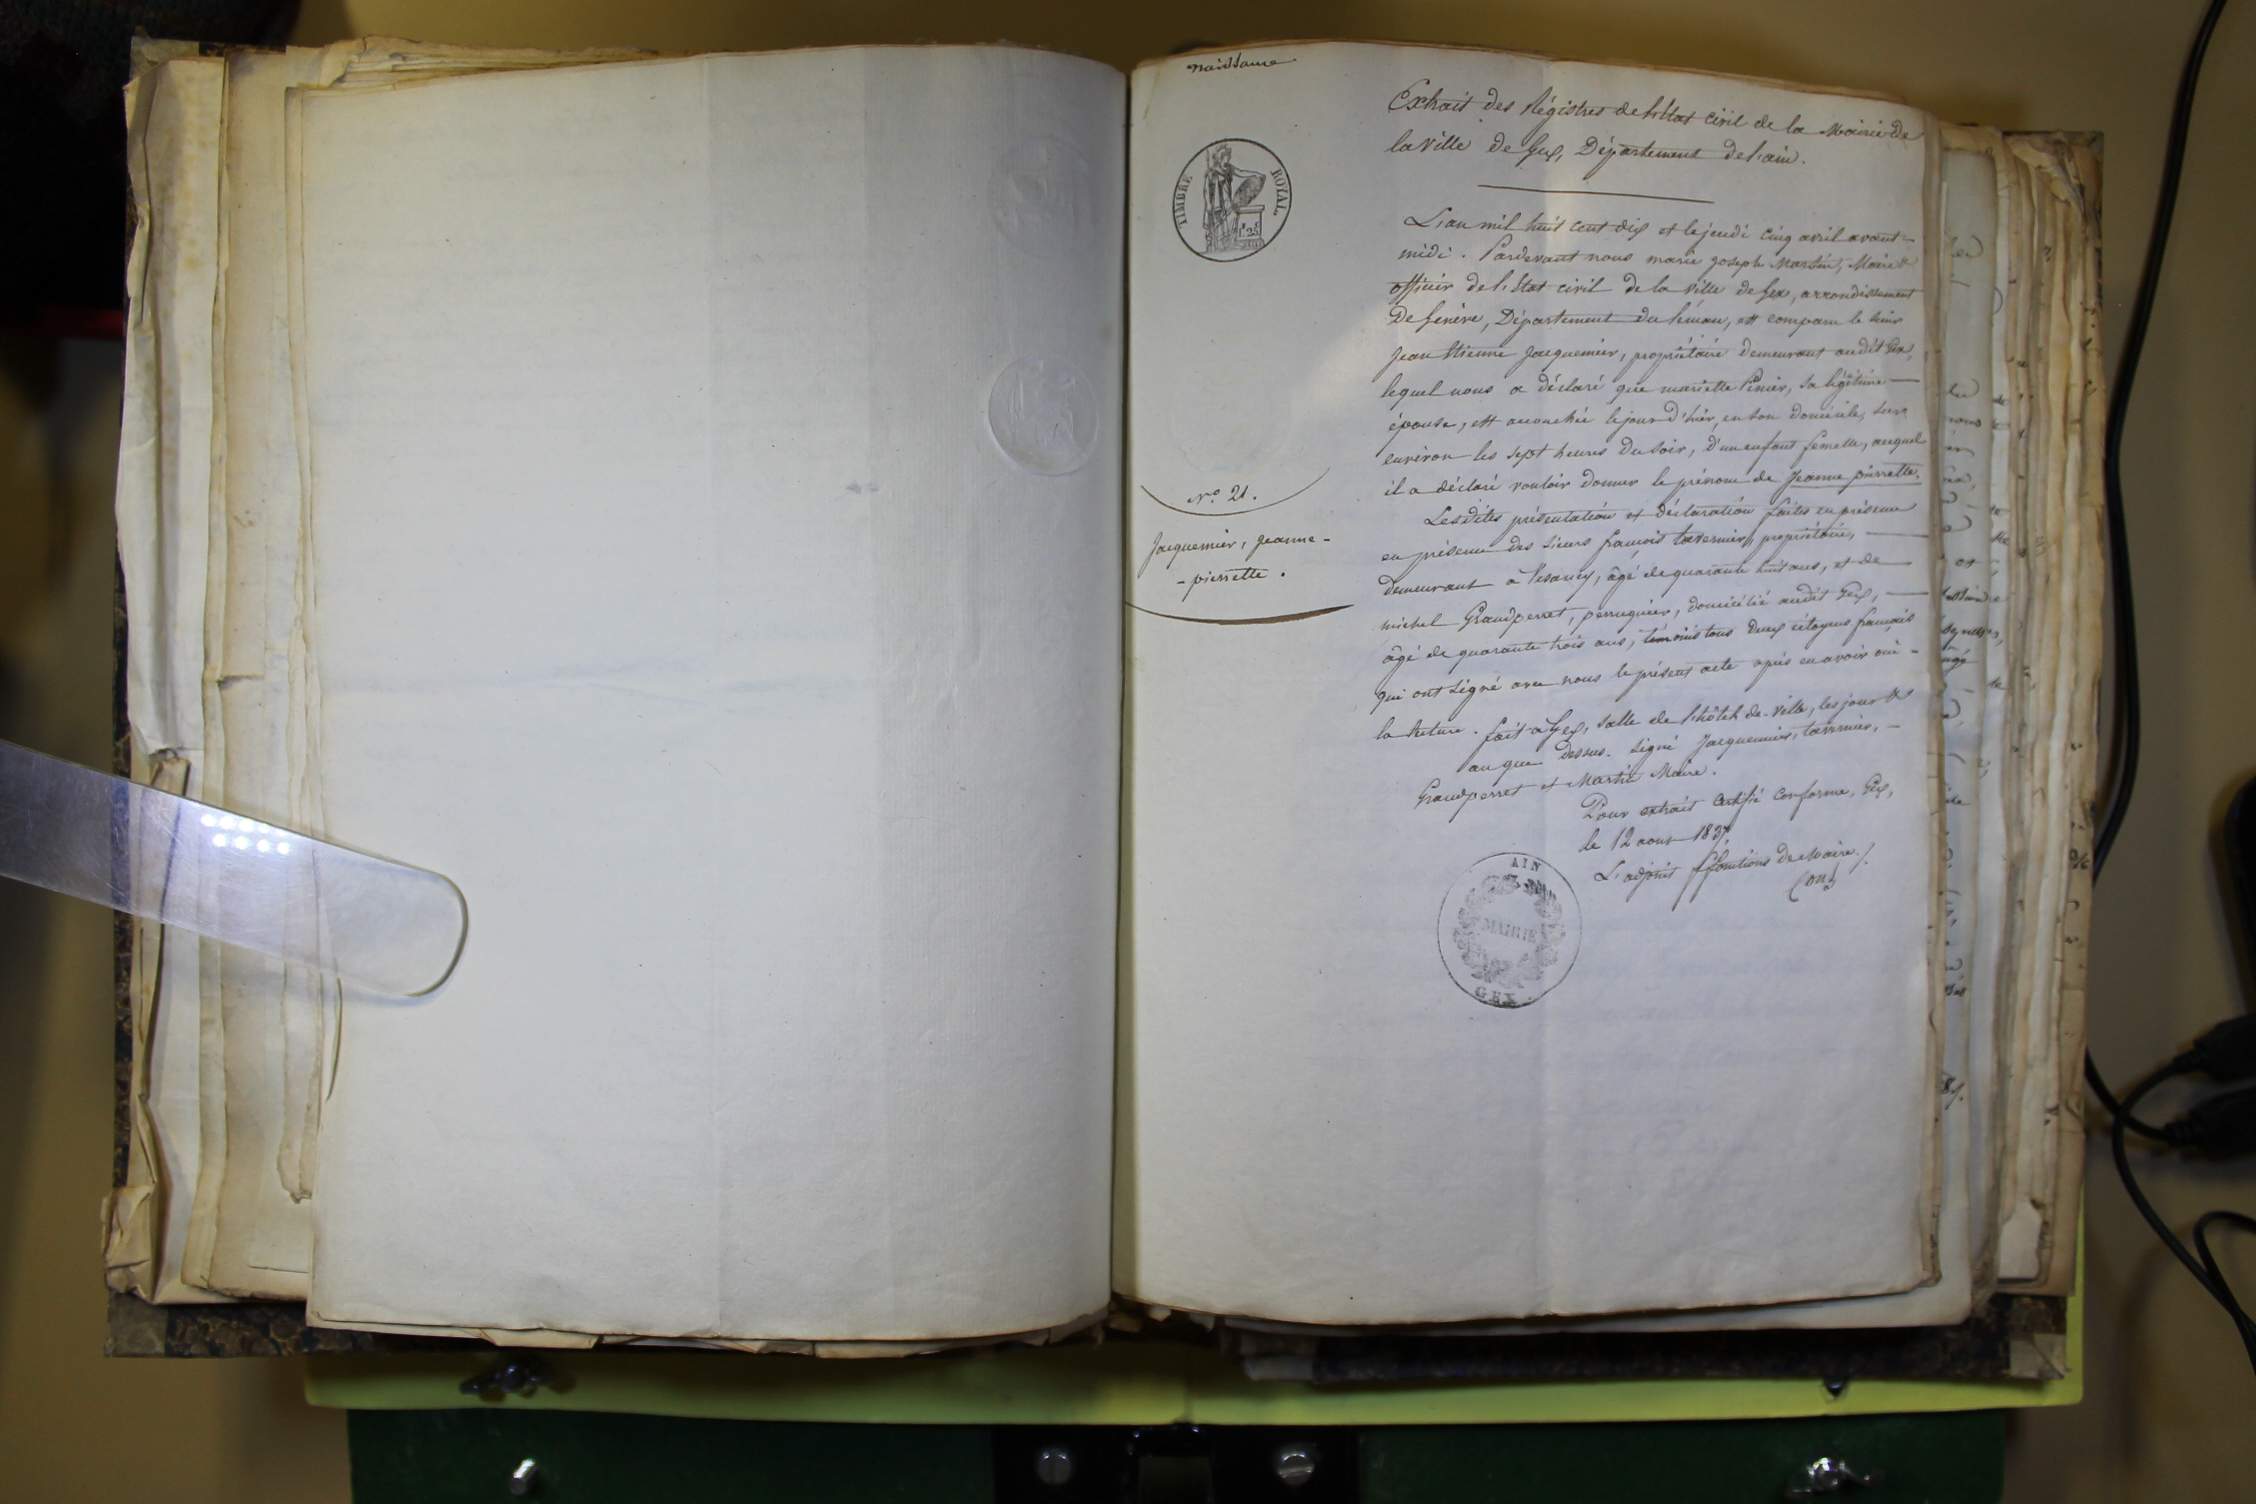 Naissance
Extrait des Régistres de l'Etat civil de la Mairie de
la Ville de Gex, Département de l'ain.
TIMBRE ROYAL
L'an mil huit cent dix et le jeudi cinq avril avant-
midi. Pardevant nous marie joseph Martin, Maire &
officier de l'Etat civil de la Ville de Gex, arrondissement
De Genève, Département du Léman, est comparu le sieur
Jean Etienne Jacquemier, propriétaire demeurant audit Gex,
lequel nous a déclaré que mariette Pinier, sa légitime
épouse, est accouchée le jour d'hier, en son domicile, sur
environ les sept heures du soir, d'un enfant femelle, auquel
il a déclaré vouloir donner le prénom de Jeanne pierrette.
N.º 21.
Jacquemier, Jeanne-
-pierrette.
Lesdites présentation et déclaration faites en présence
en présence des sieurs françois tavernier, propriétaire,
demeurant à Vesancy, âgé de quarante huit ans, et de
michel Grandperret, perruquier, domicilié audit Gex,
âgé de quarante trois ans, témoins tous deux citoyens français
qui ont signé avec nous le présent acte après en avoir oui -
la lecture. fait à Gex, salle de l'hôtel de-ville, les jour &
an que dessus. Signé Jacquemier, tavernier, -
Grandperret et Martin Maire.
Pour extrait certifié conforme, Gex,
le 12 aout 1837.
L'adjoint ffonctions de Maire.
AIN
MAIRIE
GEX